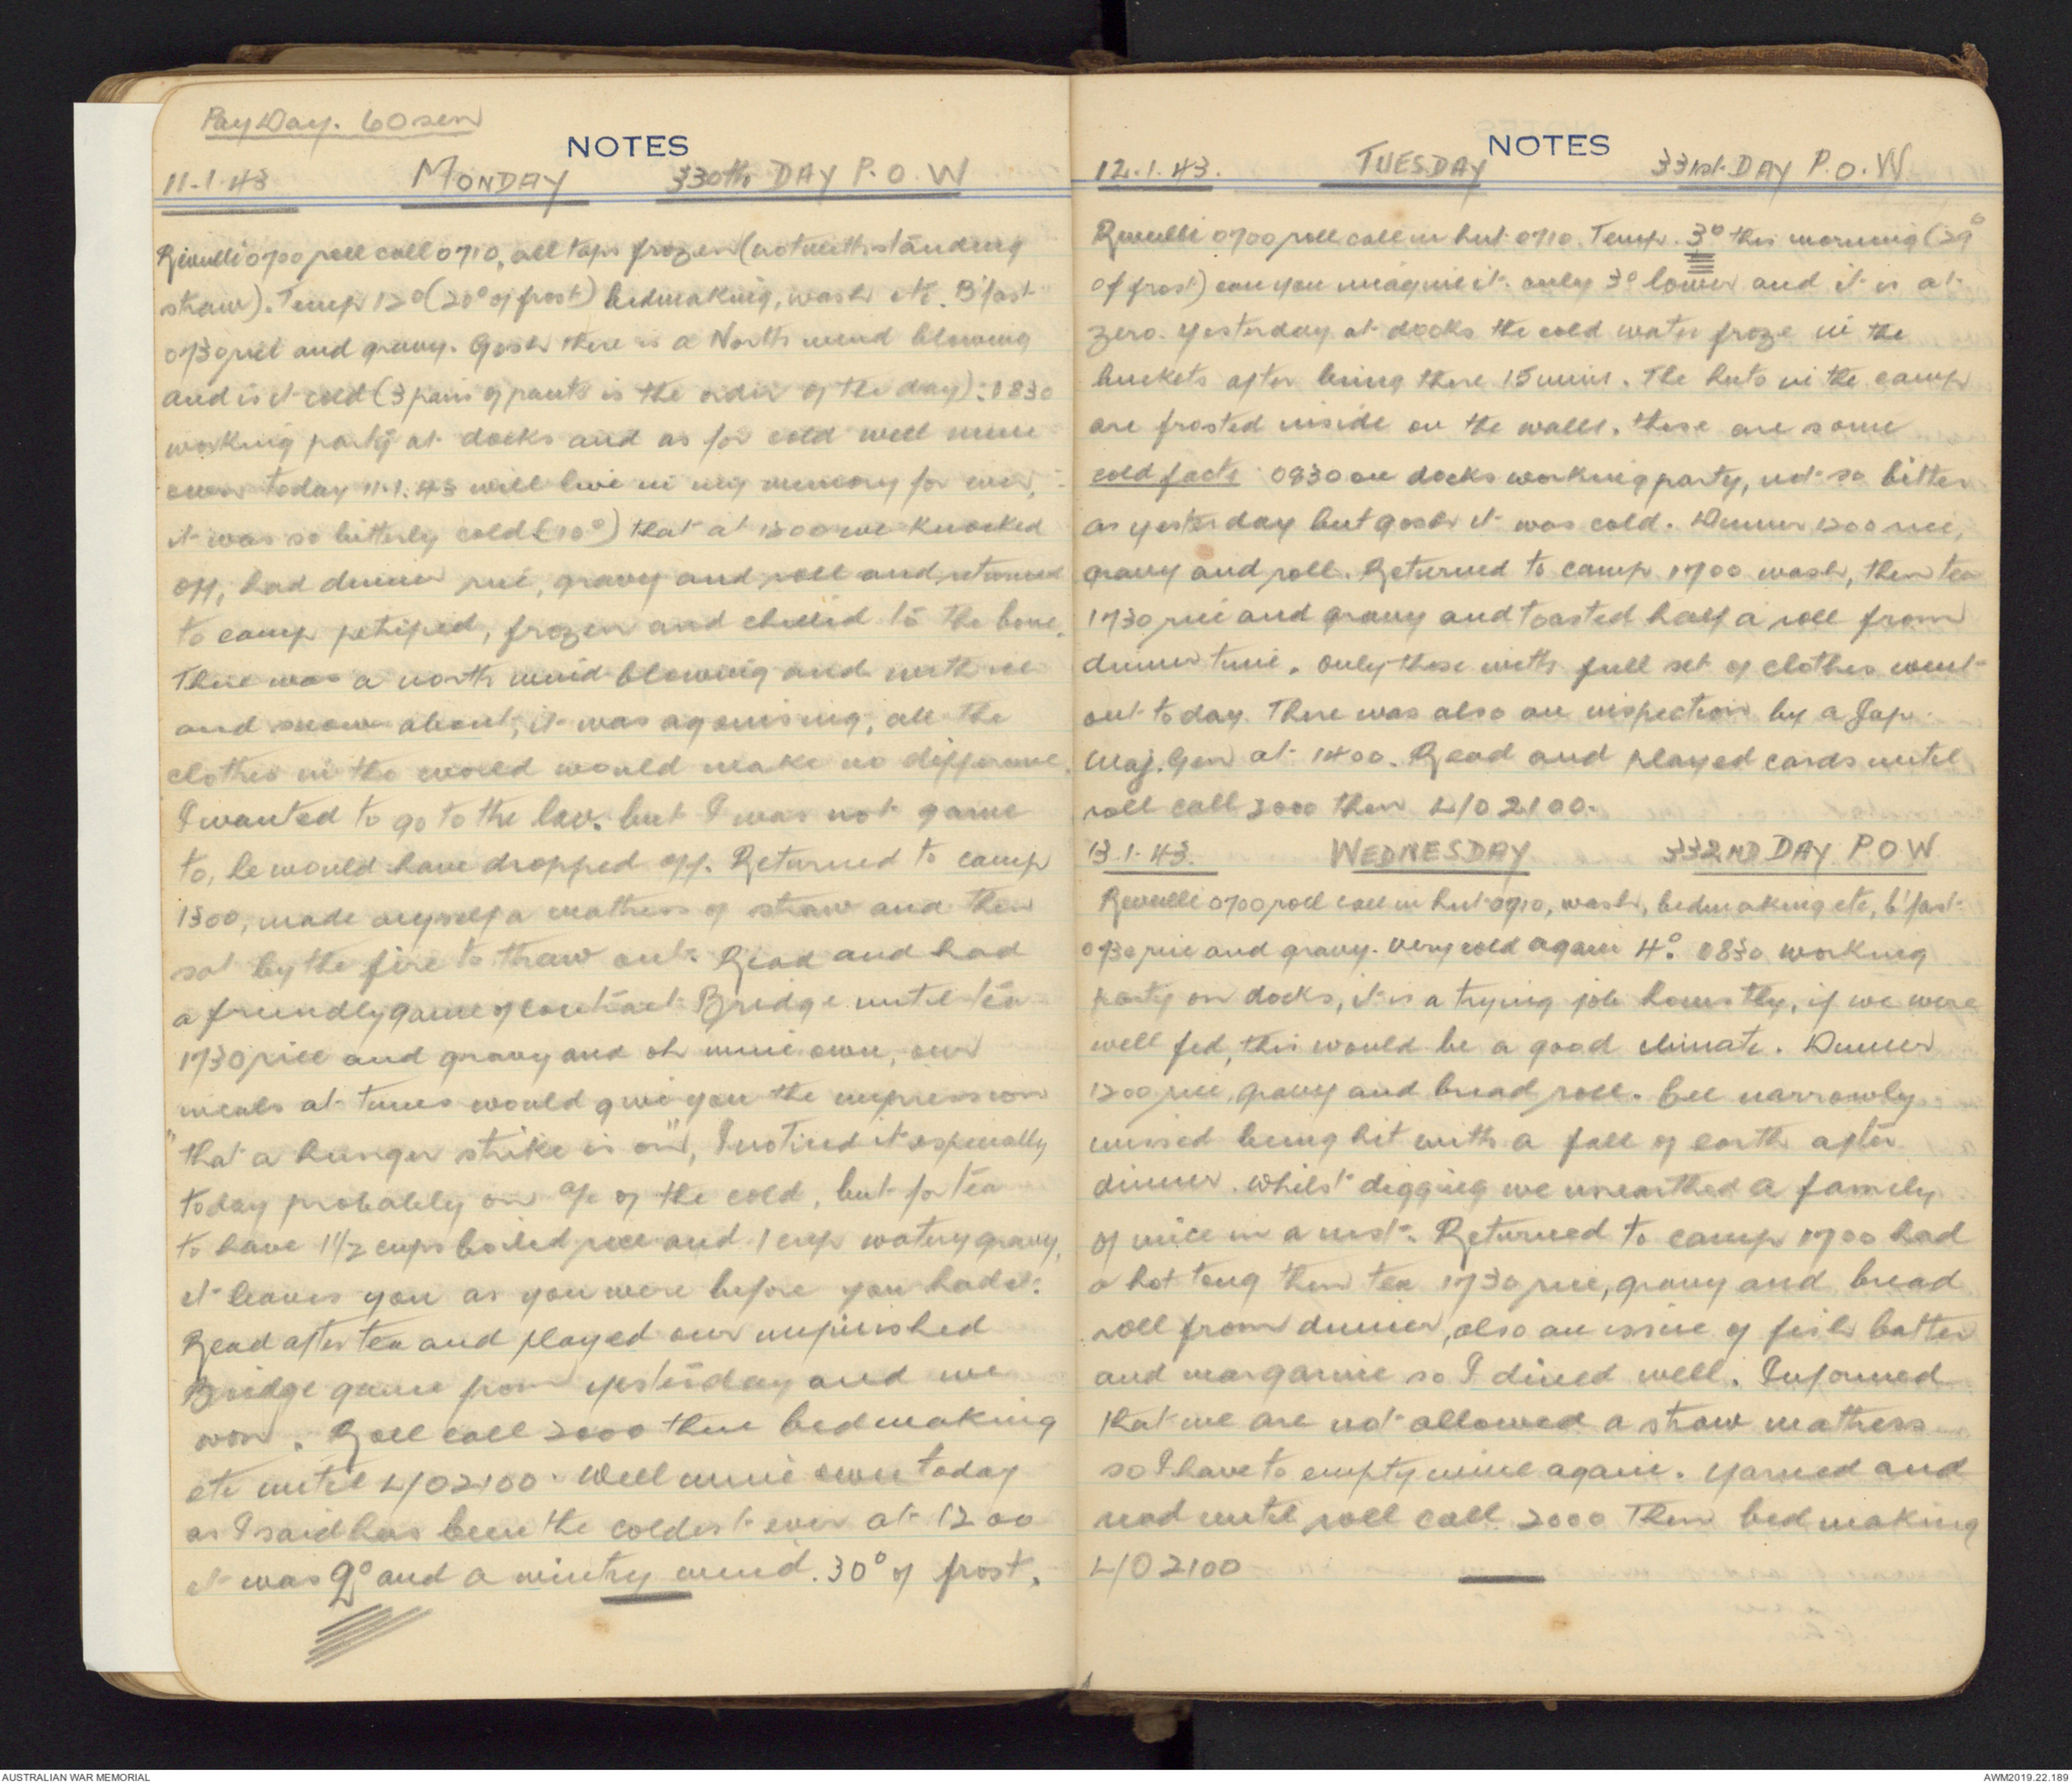 Pay Day. 60 sen
NOTES
11.1.43 MONDAY 330th DAY P.O.W
Reveulli 0700 roll call 0710, all taps frozen (notwithstanding
straw). Temp 12° (20° of frost) bedmaking, wash etc. B'fast
0730 rice and gravy. Gosh there is a North wind blowing
and is it cold (3 pairs of pants is the order of the day): 0830
working party at docks and as for cold well mine
own today 11.1.43 will live in my memory for ever,
it was so bitterly cold (10°) that at 1200 we knocked
off, had dinner rice, gravy and roll and returned
to camp petrified, frozen and chilled to the bone.
There was a north wind blowing and with ice
and snow about, it was agonising, all the
clothes in the world would make no difference.
I wanted to go to the lav. but I was not game
to, he would have dropped off. Returned to camp
1300, made myself a mattress of straw and then
sat by the fire to thaw out. Read and had
a friendly game of contract Bridge until tea
1730 rice and gravy and oh mine own, our
meals at times would give you the impression
"that a hunger strike is on", I noticed it especially
today probably on a/c of the cold, but for tea
to have 1 1/2 cups boiled rice and 1 cup watery gravy,
it leaves you as you were before you had it.
Read after tea and played our unfinished
Bridge game from yesterday and we
won. Roll call 2000 then bedmaking
etc until L/O 2100. Well mine own today
as I said has been the coldest ever at 1200
it was 9° and a wintry wind. 30° of frost.
NOTES
12.1.43. TUESDAY 331st DAY P.O.W
Reveulli 0700 roll call in hut 0710. Temp. 3° this morning (29°
of frost) can you imagine it. only 3° lower and it is at
zero. Yesterday at docks the cold water froze in the
buckets after being there 15 mins. The huts in the camp
are frosted inside on the walls. these are some
cold facts. 0830 on docks working party, not so bitter
as yesterday but gosh it was cold. Dinner 1200 rice,
gravy and roll. Returned to camp 1700 wash, then tea
1730 rice and gravy and toasted half a roll from
dinner time. Only those with full set of clothes went
out today. There was also an inspection by a Jap.
Maj. Gen at 1400. Read and played cards until
roll call 2000 then L/O 2100.
13.1.43. WEDNESDAY 332ND DAY P O W
Reveulli 0700 roll call in hut 0710, wash, bedmaking etc, b'fast
0730 rice and gravy. Very cold again 4°. 0830 working
party on docks, it is a trying job honestly, if we were
well fed, this would be a good climate. Dinner
1200 rice, gravy and bread roll. Cec narrowly
missed being hit with a fall of earth after
dinner. Whilst digging we unearthed a family
of mice in a nest. Returned to camp 1700 had
a hot tong then tea 1730 rice, gravy and bread
roll from dinner, also an issue of fish batter
and margarine so I dined well. Informed
that we are not allowed a straw mattress
so I have to empty mine again. Yarned and
read until roll call 2000 Then bedmaking
L/O 2100
AUSTRALIAN WAR MEMORIAL
AWM2019.22.189